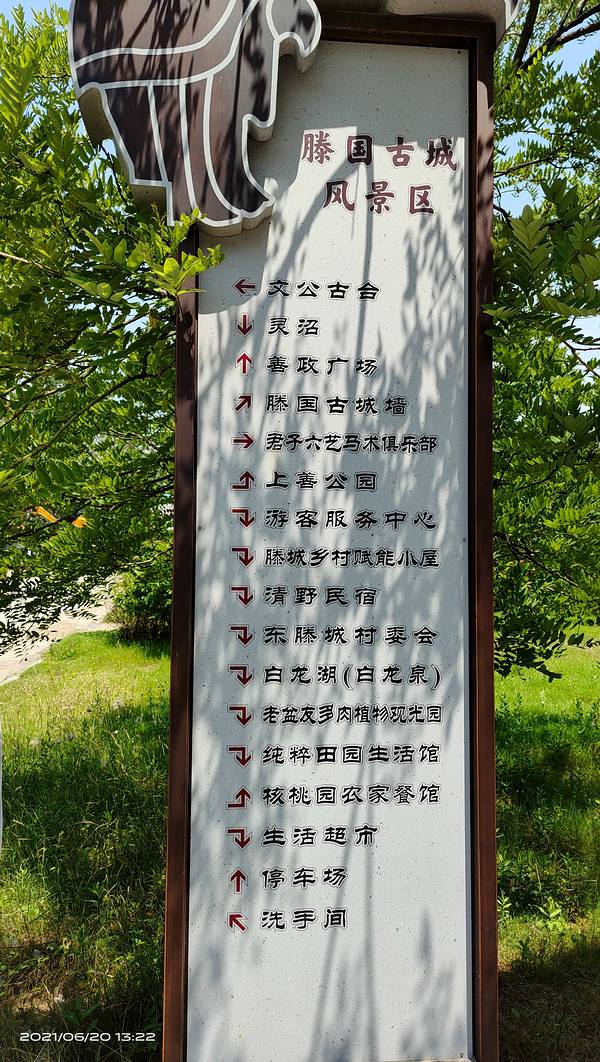 滕国古城
风景区
← 文公古台
↓ 灵沼
↑ 善政广场
↗ 滕国古城墙
→ 君子六艺马术俱乐部
上善公园
游客服务中心
滕城乡村赋能小屋
清野民宿
东滕城村委会
白龙湖(白龙泉)
老盆友多肉植物观光园
纯粹田园生活馆
核桃园农家餐馆
生活超市
↑ 停车场
↖ 洗手间
2021/06/20 13:22